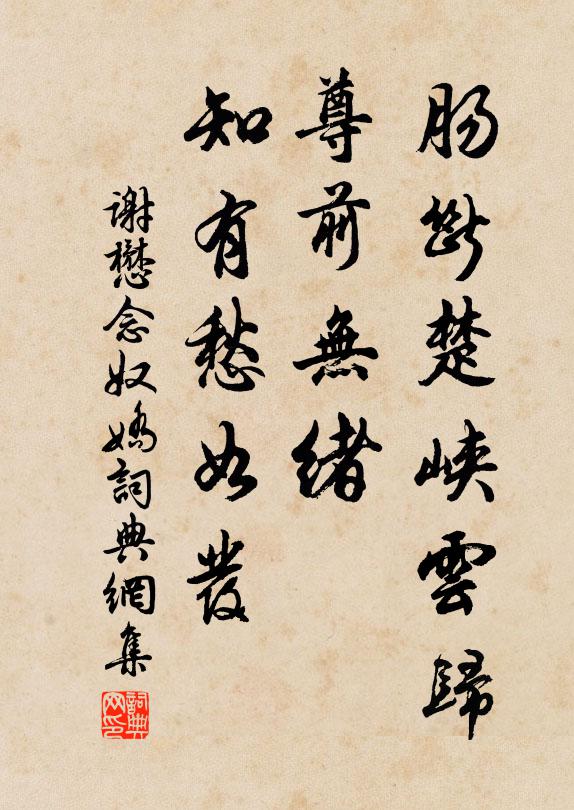 肠斷楚峽雲歸
尊前無緒
知有愁如發
謝懋念奴嬌詞典網集
詞典網印